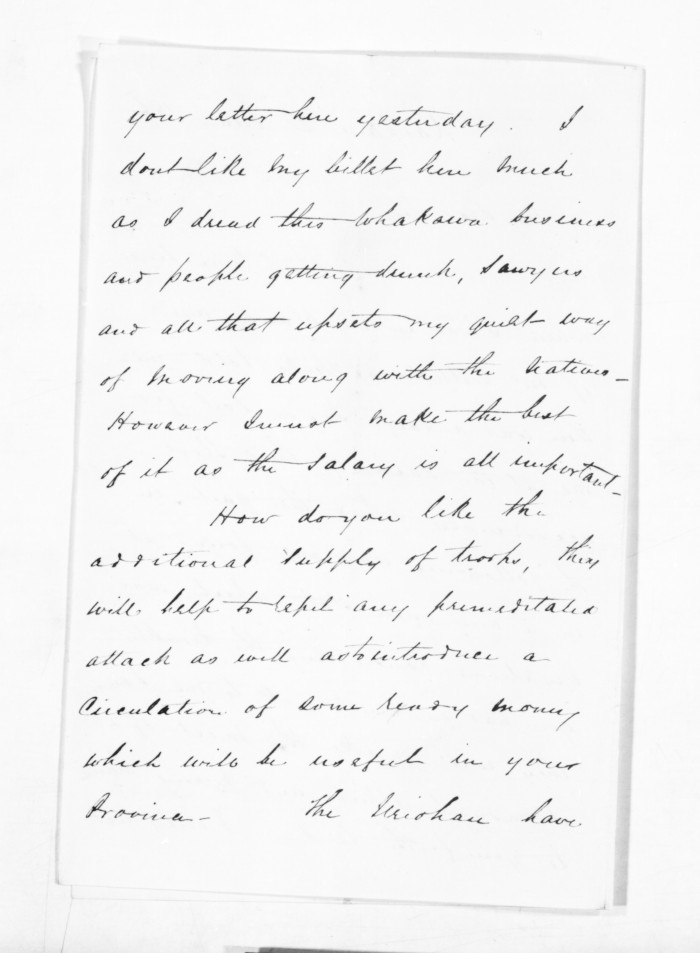 your letter here yesterday. I
dont like my billet here much
as I dread this Whakawa business
and people getting drunk, Sawyers
and all that upsets my quiet way
of moving along with the Natives -
However I must make the best
of it as the Salary is all important -
How do you like the
additional supply of troops, they
will help to repel any premeditated
attack as well as to introduce a
Circulation of some ready money
which will be useful in your
Province - The Uriohau have